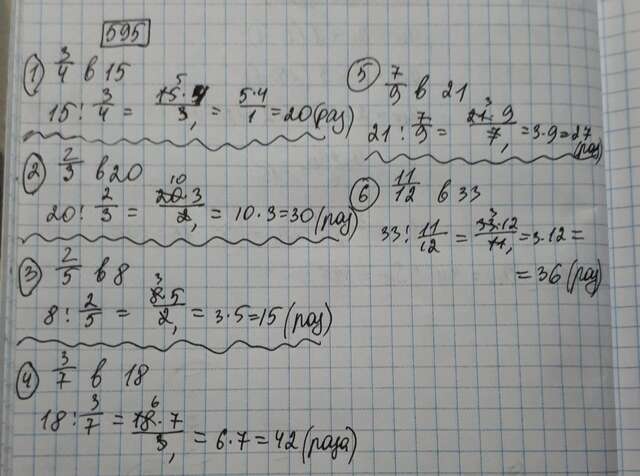 595
① 3/4 в 15
15 : 3/4 = 15·4/3 = 5·4/1 = 20 (раз)
② 2/3 в 20
20 : 2/3 = 20·3/2 = 10·3=30 (раз)
③ 2/5 в 8
8 : 2/5 = 8·5/2 = 3·5=15 (раз)
④ 3/7 в 18
18 : 3/7 = 18·7/3 = 6·7=42 (раза)
⑤ 7/9 в 21
21 : 7/9 = 21·9/7 = 3·9=27 (раз)
⑥ 11/12 в 33
33 : 11/12 = 33·12/11 = 3·12 =
= 36 (раз)